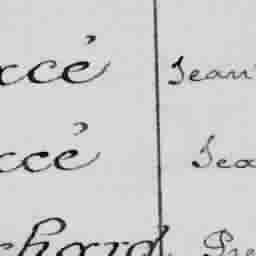 xcé Jean
ccé Jea
chard Pre